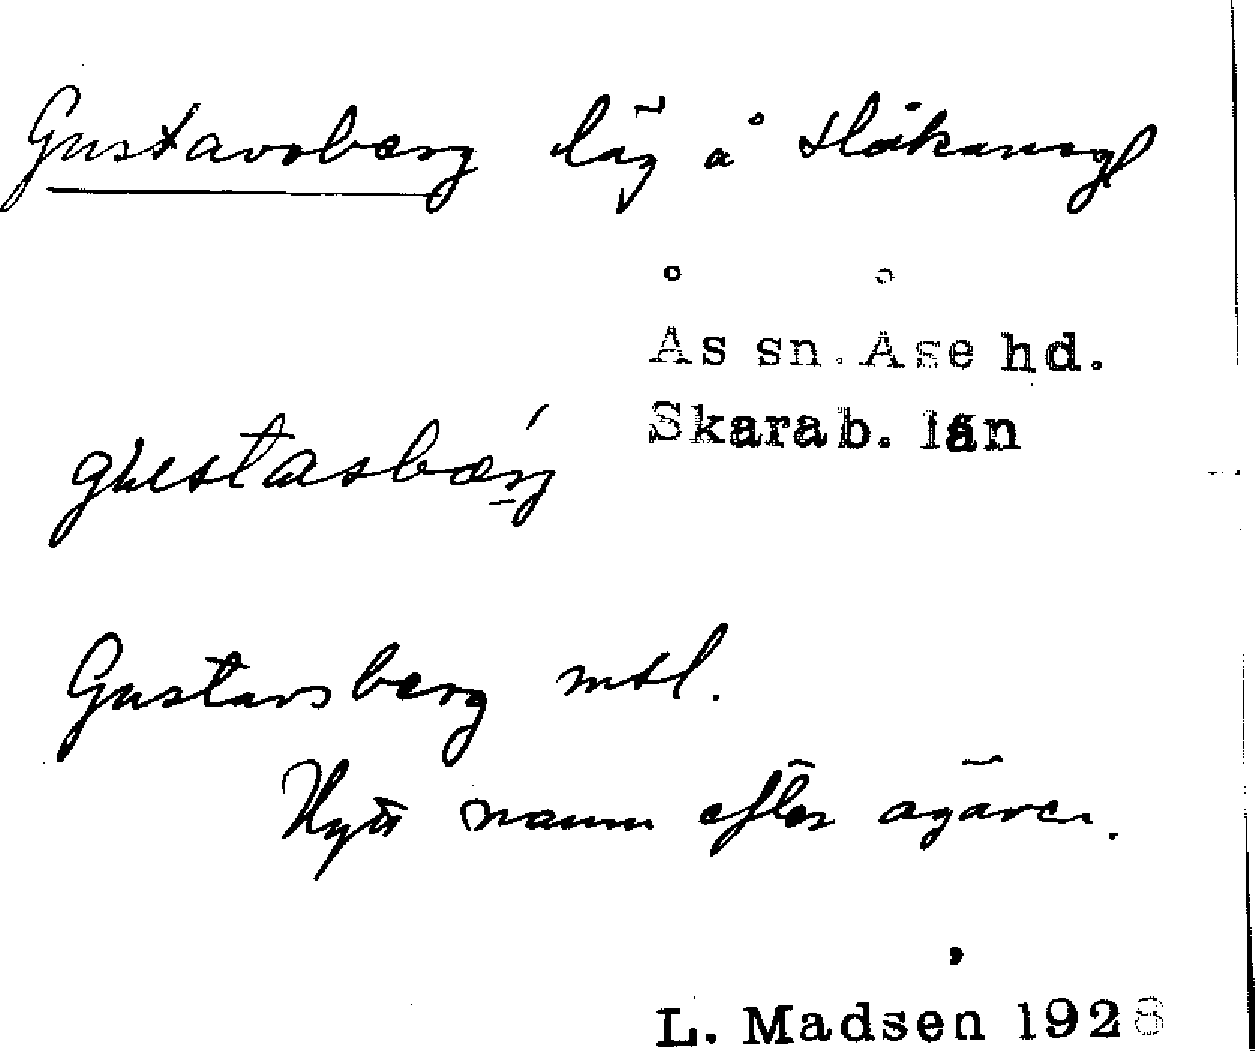 Gustavsberg läg å Håkansg
Ås sn. Åse hd.
Skarab. län
gustasbærj
Gustavsberg mtl.
Nytt namn efter ägaren.
L. Madsen 1928